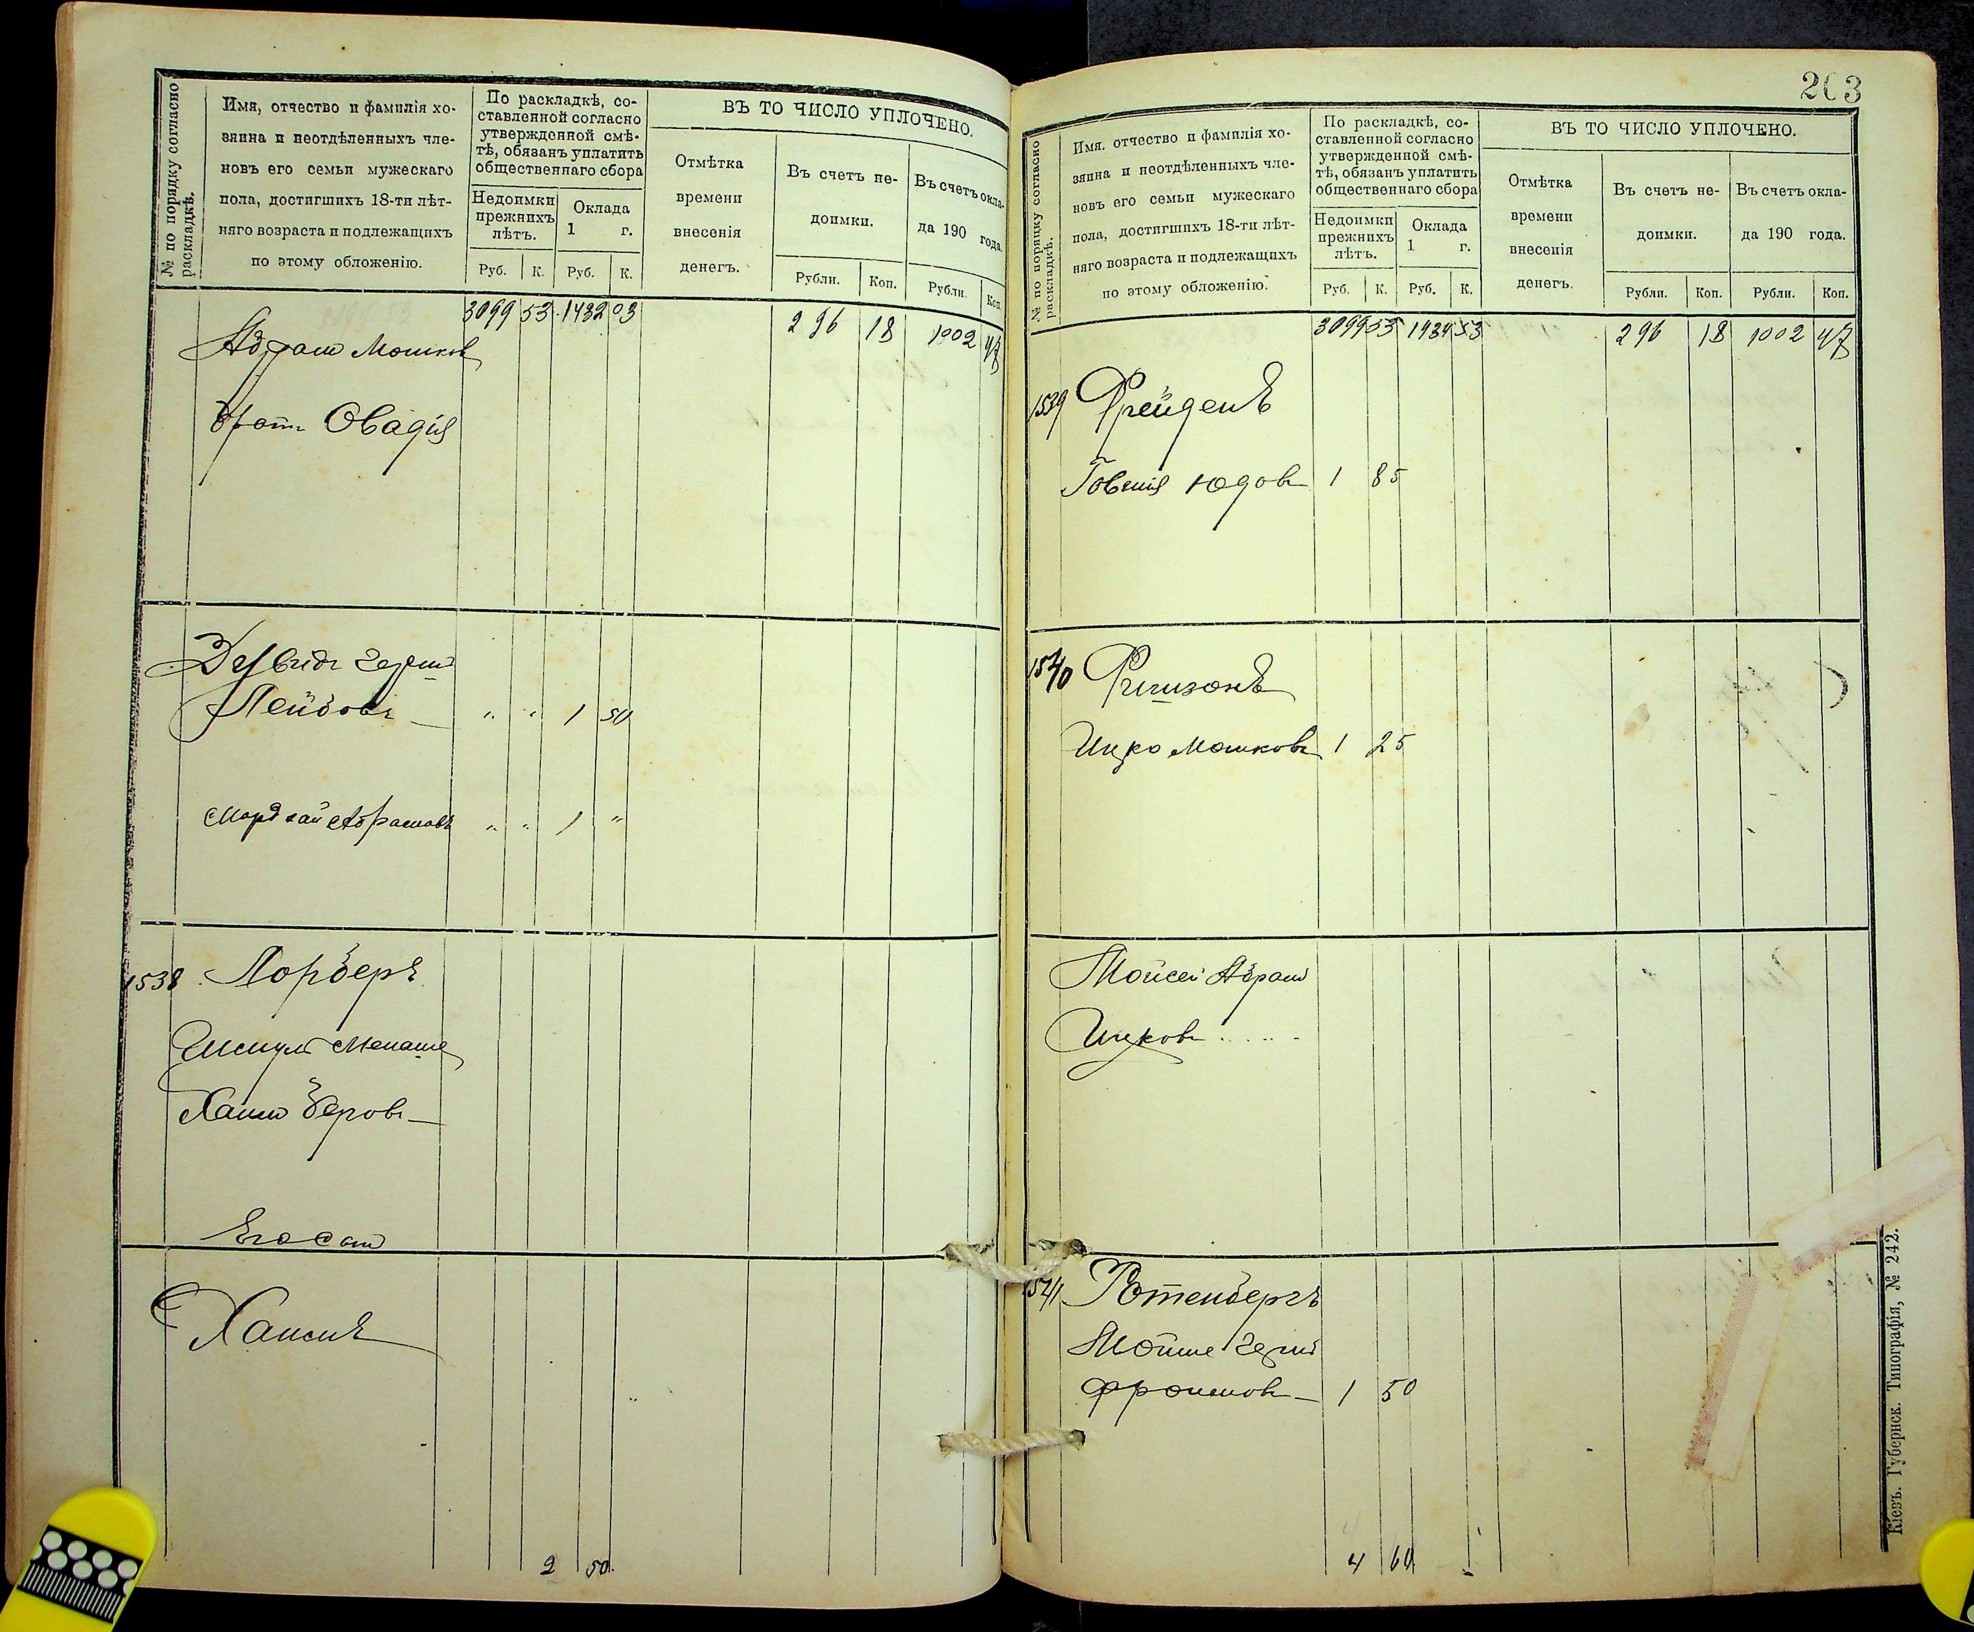 № по порядку согласно раскладкѣ.
Имя, отчество и фамилія хо-
зяина и неотдѣленныхъ чле-
новъ его семьи мужескаго
пола, достигшихъ 18-ти лѣт-
няго возраста и подлежащихъ
по этому обложенію.
По раскладкѣ, со-
ставленной согласно
утвержденной смѣ-
тѣ, обязанъ уплатить
общественнаго сбора
Недоимки
прежнихъ
лѣтъ.
Оклада
1 г.
Руб. К. Руб. К.
ВЪ ТО ЧИСЛО УПЛОЧЕНО.
Отмѣтка
времени
внесенія
денегъ.
Въ счетъ не-
доимки.
Въ счетъ окла-
да 190 года.
Рубли. Коп. Рубли. Коп.
3099 53 1432 03 296 18 1002 47
Абрам Мошков
брат Овадія
Дувид Герш
Лейбовъ " " 1 50
Мордхай Абрамовъ " " 1 "
1538 Лорберъ
Менаше
Хаим Беров
Хаимъ
2 50
203
№ по порядку согласно раскладкѣ.
Имя, отчество и фамилія хо-
зяина и неотдѣленныхъ чле-
новъ его семьи мужескаго
пола, достигшихъ 18-ти лѣт-
няго возраста и подлежащихъ
по этому обложенію.
По раскладкѣ, со-
ставленной согласно
утвержденной смѣ-
тѣ, обязанъ уплатить
общественнаго сбора
Недоимки
прежнихъ
лѣтъ.
Оклада
1 г.
Руб. К. Руб. К.
ВЪ ТО ЧИСЛО УПЛОЧЕНО.
Отмѣтка
времени
внесенія
денегъ.
Въ счетъ не-
доимки.
Въ счетъ окла-
да 190 года.
Рубли. Коп. Рубли. Коп.
3099 53 1434 53 296 18 1002 47
1539 Фрейденъ
Товшія Юдов 1 85
1540
Ицко Мошковъ 1 25
Мойсей Абрам
Ицков
1541 Ротенбергъ
Мойше Герш
Фроимов 1 50
4 60
Кіевъ. Губернск. Типографія, № 242.